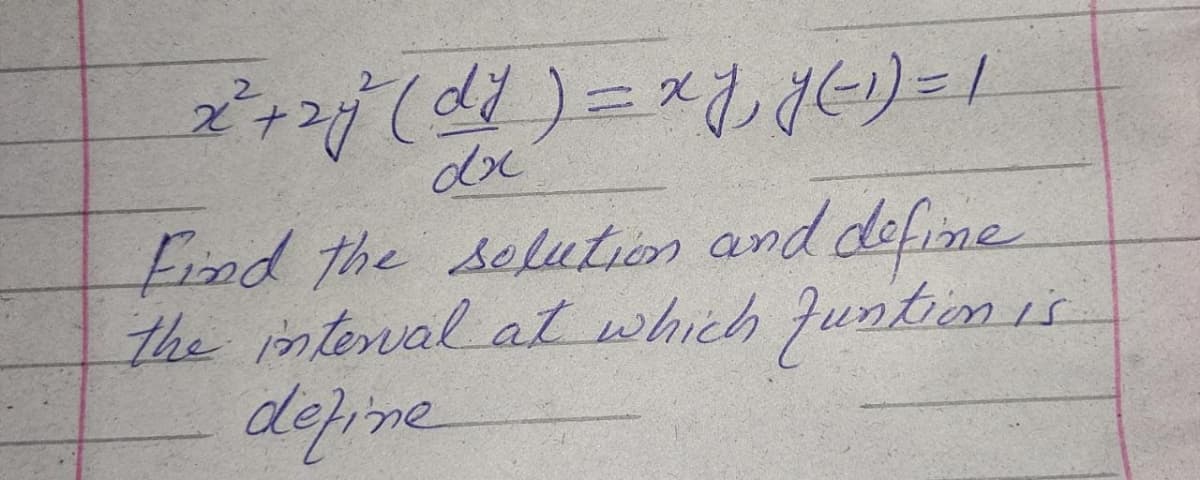 x² + 2y² (dy/dx) = xy, y(-1) = 1
Find the solution and define
the interval at which funtion is
define